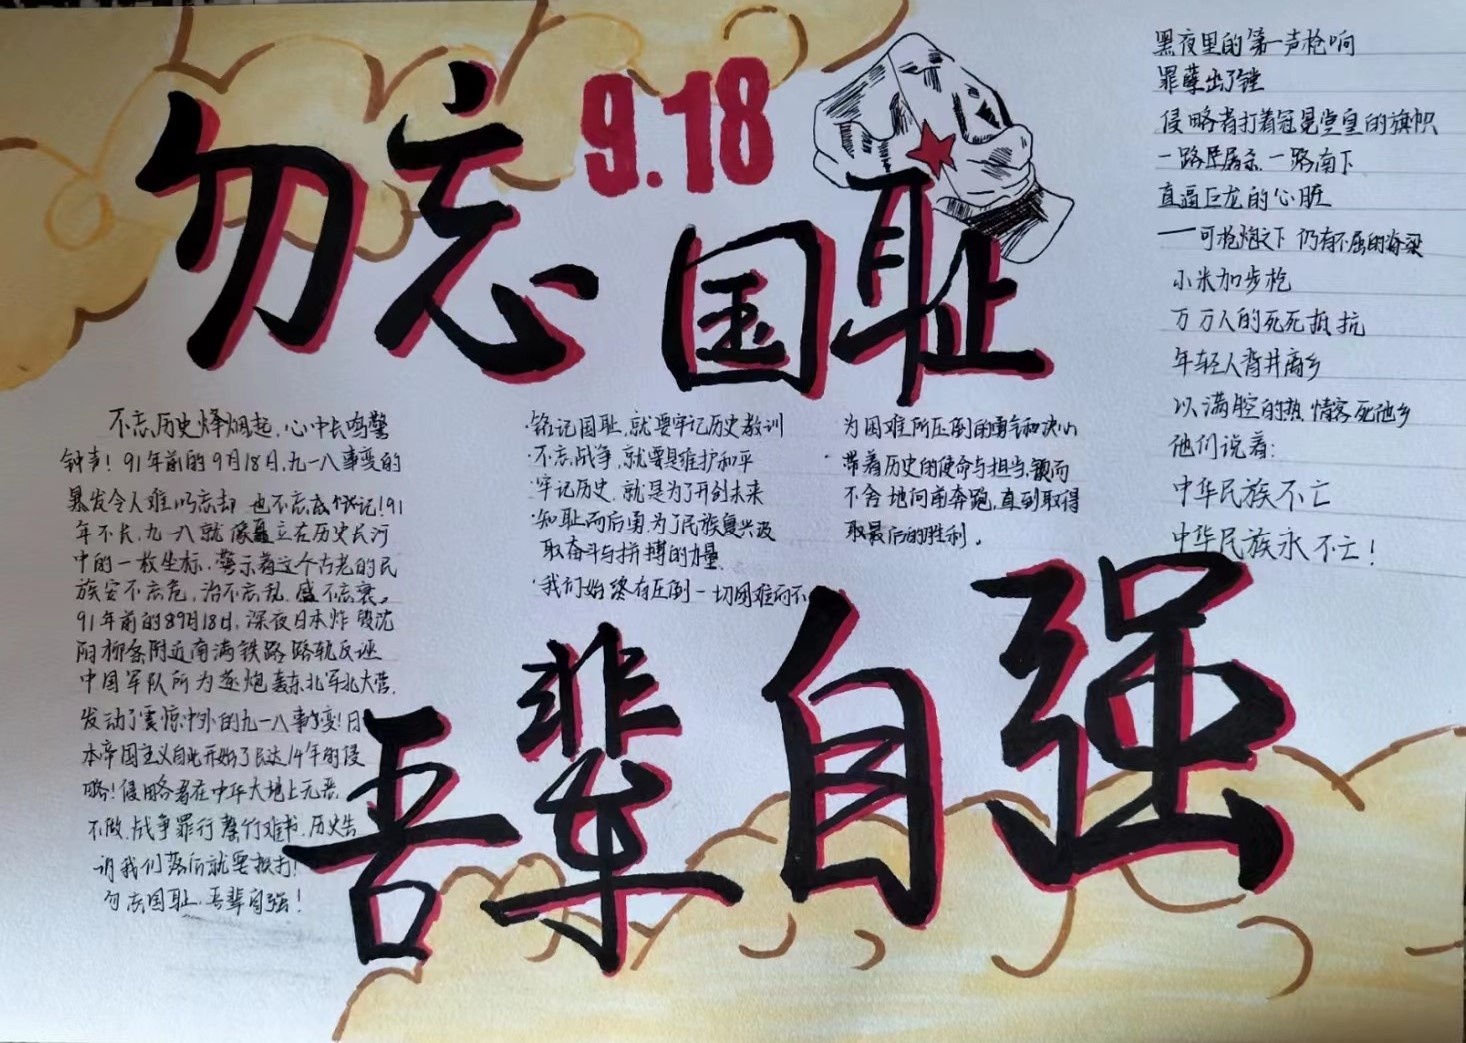 勿忘
9.18
国耻
不忘历史烽烟起,心中长鸣警
钟声!91年前的9月18日,九一八事变的
暴发令人难以忘却 也不忘忘记!91
年不长,九一八就像矗立在历史长河
中的一枚坐标,警示着这个古老的民
族安不忘危,治不忘乱,盛不忘衰。
91年前的9月18日,深夜日本炸毁沈
阳柳条附近南满铁路路轨反诬
中国军队所为遂炮轰东北军北大营,
发动了震惊中外的九一八事变!日
本帝国主义自此开始了长达14年的侵
略!侵略者在中华大地上无恶
不做,战争罪行罄竹难书,历史告
诉我们落后就要挨打!
勿忘国耻,吾辈自强!
·铭记国耻,就要牢记历史教训
·不忘战争,就要是维护和平
·牢记历史,就是为了开创未来
·知耻而后勇,为了民族复兴汲
取奋斗与拼搏的力量
·我们始终有压倒一切困难而不
为困难所压倒的勇气和决心
·带着历史的使命与担当,锲而
不舍地向前奔跑,直到取得
取最后的胜利。
黑夜里的第一声枪响
罪孽出了锉
侵略者打着冠冕堂皇的旗帜
一路屠杀一路南下
直逼巨龙的心脏
一可枪炮之下 仍有不屈的脊梁
小米加步枪
万万人的死死抵抗
年轻人背井离乡
以满腔的热情客死他乡
他们说着:
中华民族不亡
中华民族永不亡!
吾辈自强